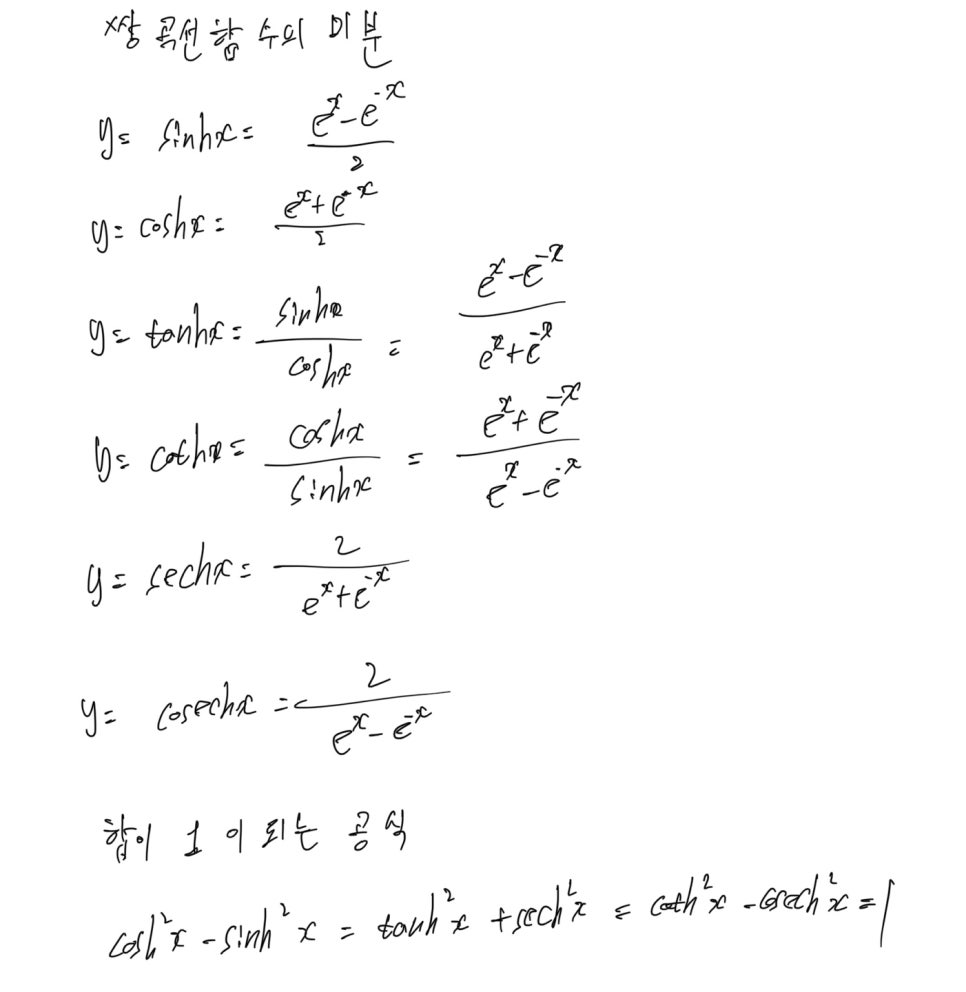 쌍곡선함수의 미분
y = sinhx = (e^x - e^-x) / 2
y = coshx = (e^x + e^-x) / 2
y = tanhx = sinhx / coshx = (e^x - e^-x) / (e^x + e^-x)
y = cothx = coshx / sinhx = (e^x + e^-x) / (e^x - e^-x)
y = sechx = 2 / (e^x + e^-x)
y = cosechx = 2 / (e^x - e^-x)
합이 1이 되는 공식
cosh²x - sinh²x = tanh²x + sech²x = coth²x - csech²x = 1